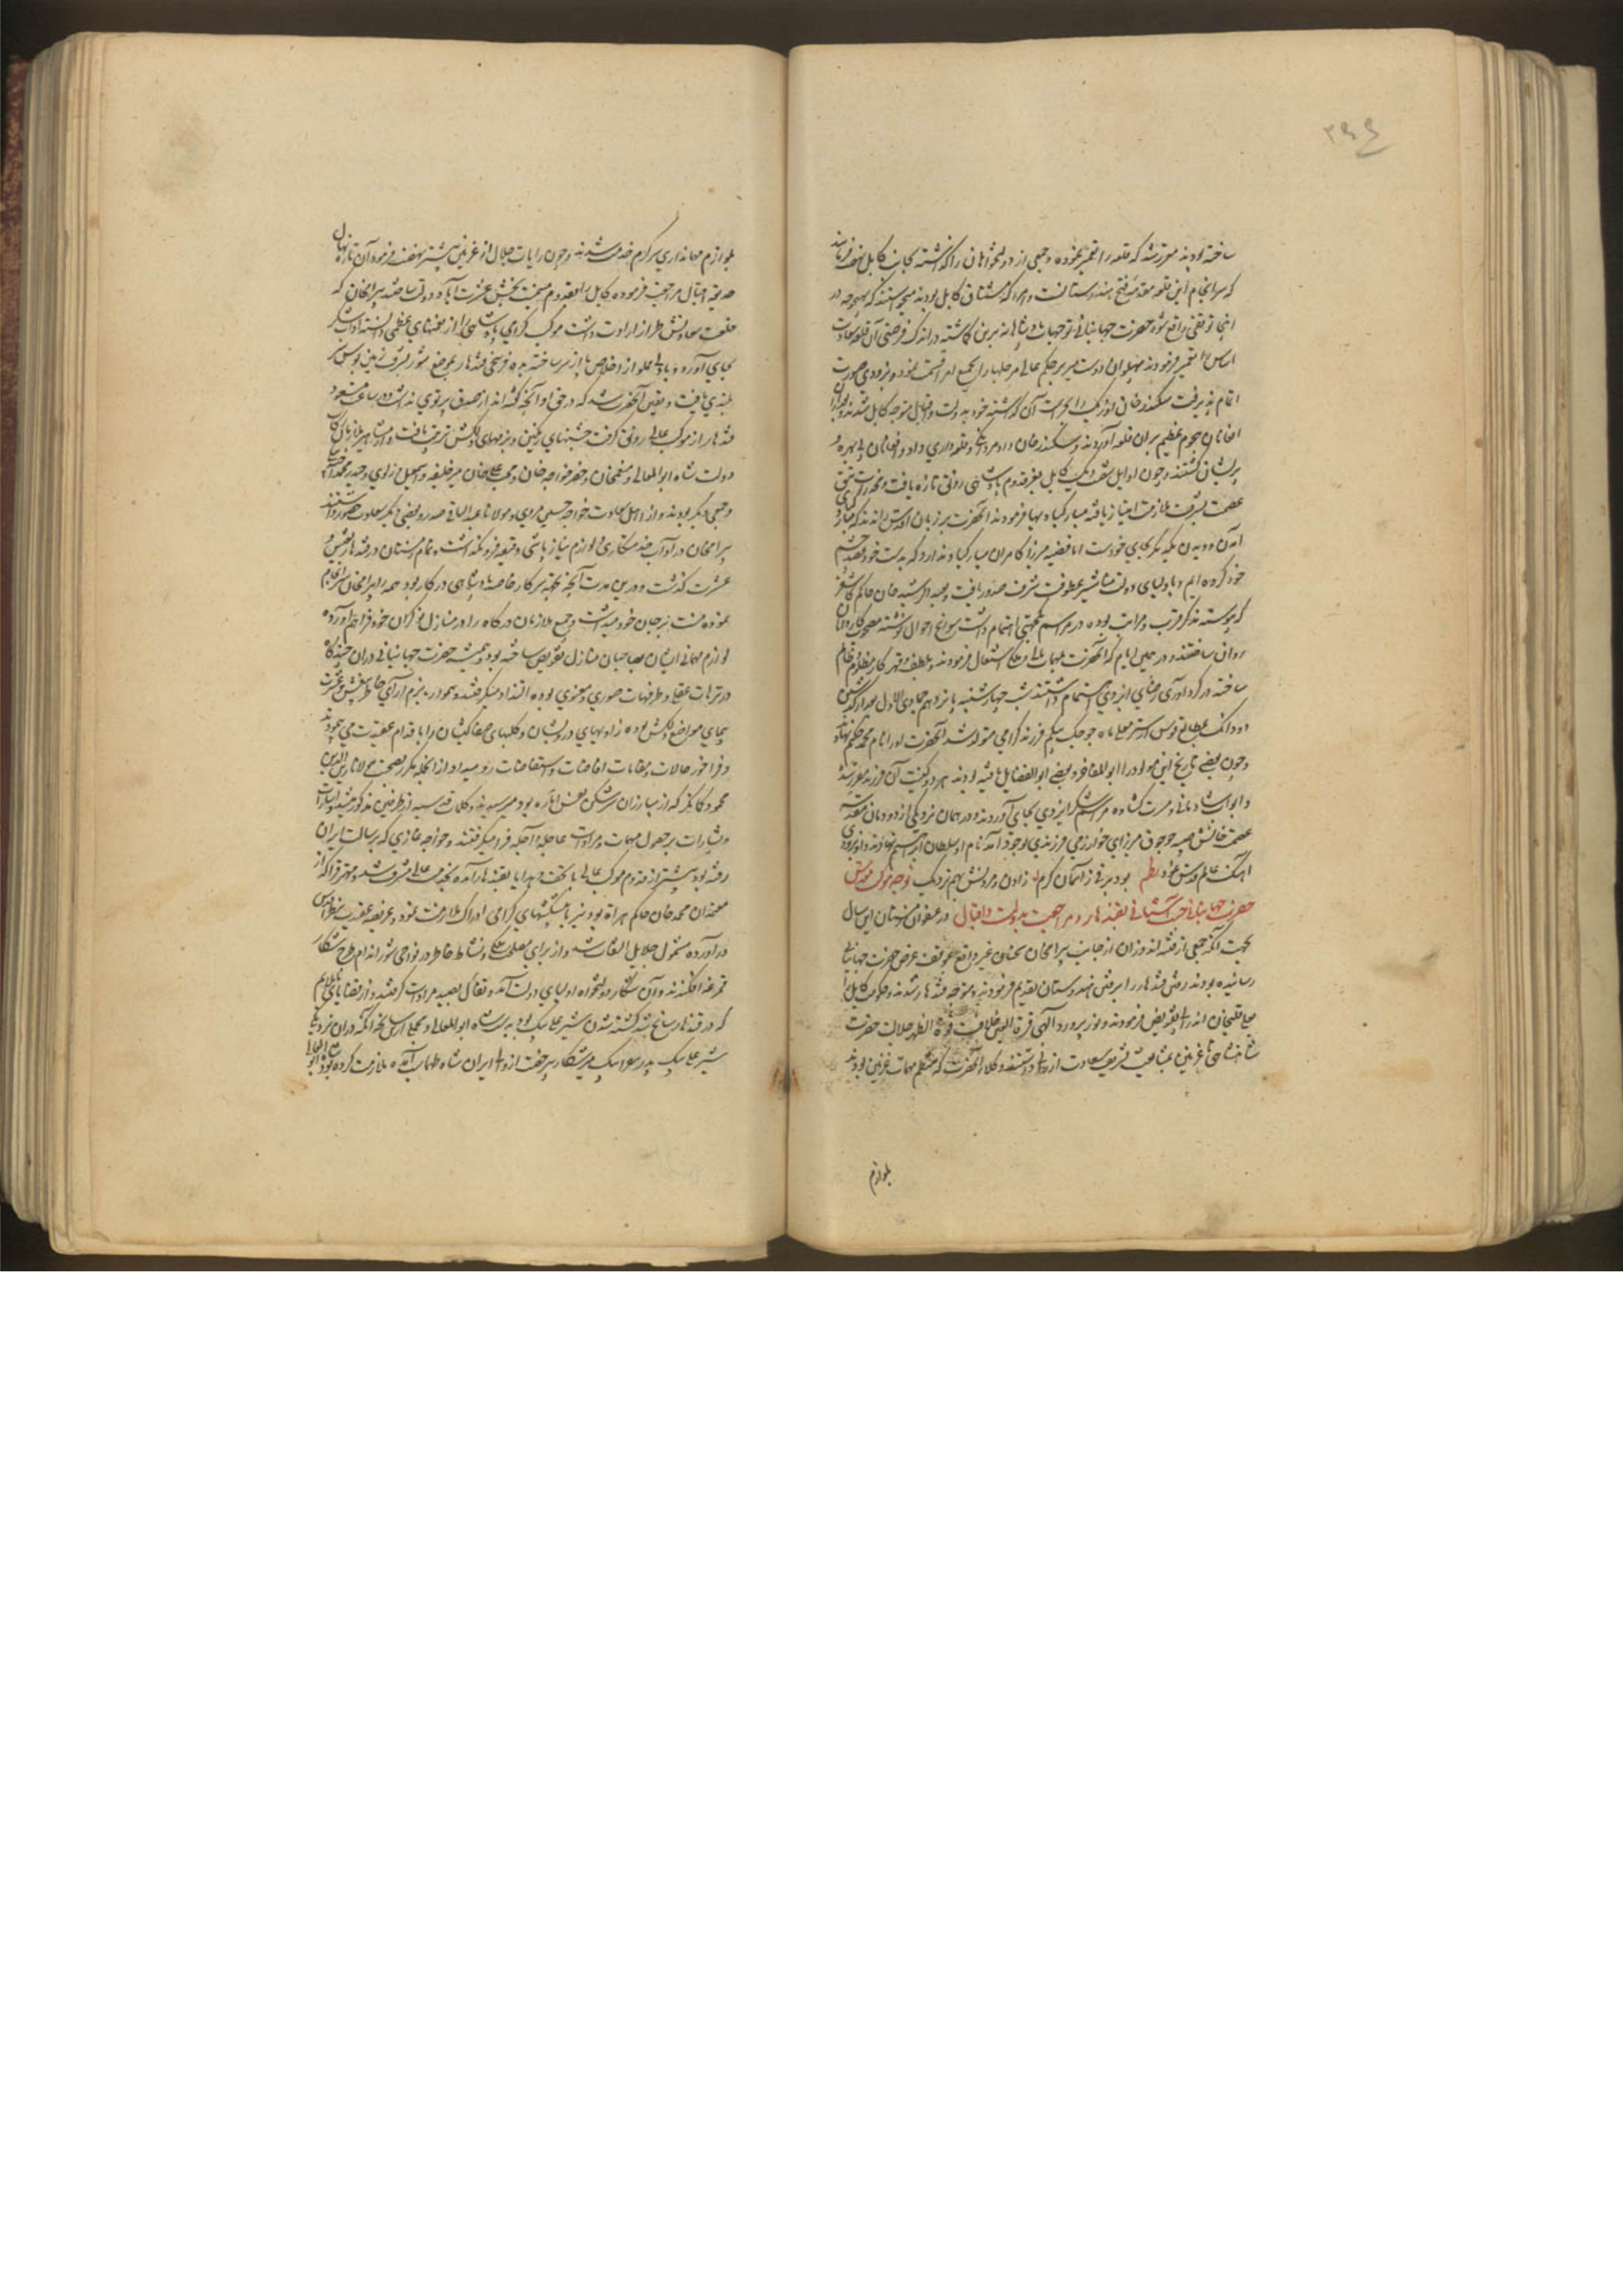 ساخته بودند مقرر شد که قلعه را تعمیر نموده و جمعی از دولتخواهان را گذاشته بجانب کابل نهضت فرمایند
که سرانجام این قلعه مقدمه فتح هندوستانست و امرا که مشتاق کابل بودند نمیخواستند که بهیچوجه در
اینجا توقفی واقع شود حضرت جهانبانی توجهات پادشاهانه برین گماشته در اندک فرصتی آن قلعه سعادت
اساس را تعمیر فرمودند پهلوان دوست میر بر حکم عالی مرحلها را بجمیع امرا قسمت نمود و بزودی صورت
اتمام پذیرفت سکندر خان اوزبک را بحراست آن گذاشته خود بدولت و اقبال متوجه کابل شدند
افغانان هجوم عظیم بران قلعه آوردند و سکندر خان داد مردانگی و قلعه داری داد و افغانان بی بهره و
پریشان گشتند و چون اوایل کابل بفر قدوم پادشاهی رونق تازه یافت و مخدرات تتق
عصمت بشرف ملازمت امتیاز یافته مبارکباد بها فرمودند آنحضرت بر زبان اقدس راندند که مبارکبادی
آمدن و دیدن یکدیگر بجای خودست اما قضیه میرزا کامران مبارکباد ندارد که بدست خود قصد چشم
خود کرده ایم و باولیای دولت مناشیر عطوفت شرف صدور یافت و عبد الرشید خان حاکم کاشغر
که پیوسته تذکر قرب و قرابت بوده در مراسم یکجهتی اهتمام داشت سوانح احوال نوشته مصحوب کاردانان
روان ساختند و در همین ایام که آنحضرت بمهمات مالی و ملکی اشتغال فرمودند و بلطف و قهر کار مظلوم و ظالم
ساخته در گردآوری رضای ایزدی اهتمام داشتند شب چهارشنبه پانزدهم جمادی الاول
بطالع قوس از ستر معلی ماه جوجک بیگم فرزند گرامی متولد شد آنحضرت او را نام محمد حکیم نهادند
و چون بعضی تاریخ این مولود را ابو المفاخر و بعضی ابو الفضایل یافته بودند هر دو کنیت آن فرزند مقرر شد
و ابواب شادمانی و مسرت گشاده مراسم شکر ایزدی بجای آوردند و در همان نزدیکی از دودمان مقدسه
عصمت خانش صبیه جوجوق میرزای خوارزمی فرزندی بوجود آمد نام او سلطان ابراهیم نهادند و بزودی
آهنگ عالم قدس نمود نظم بود برقی ز آسمان کرم زادن و مردنش بهم نزدیک توجه موکب مقدس
حضرت جهانبانی جنت آشیانی بقندهار و مراجعت بدولت و اقبال در عنفوان زمستان این سال
بجهت آنکه جمعی از فتنه اندوزان از جانب بیرامخان سخنان غیر واقع بموقف عرض حضرت جهانبانی
رسانیده بودند رفتن قندهار را بر رفتن هندوستان تقدیم فرمودند و متوجه قندهار شدند و حکومت کابل را
بعلی قلیخان اندرابی تفویض فرمودند و نور پرورد الهی قرة العین خلافت قوة الظهر جلالت حضرت
شاهنشاهی تا غزنین بمشایعت تشریف سعادت ارزانی داشتند و وکلای آنحضرت که متکفل مهمات غزنین بودند
بلوازم
بلوازم مهمانداری سرگرم خدمت شدند و چون رایات جلال از غزنین پیشتر نهضت فرمود آن تازه نهال
حدیقه اقبال مراجعت فرموده کابل را بقدوم میمنت بخش عشرت آباد دولت ساختند بیرامخان که
خلعت سعادتش طراز ارادت داشت موکب گرامی پادشاهی را از نعمتهای عظمی دانسته آداب شکر
بجای آورد و با دلی مملو از اخلاص پا از سر ساخته به ده فرسخی قندهار بموضع شورابدی بشرف زمین بوس سر
بلندی یافت و یقین آنحضرت شد که در حق او آنچه گفته اند از صدق پرتوی نداشت در ساعت مسعود
قندهار از موکب عالی رونق گرفت جشنهای رنگین و بزمهای دلکش ترتیب یافت و از مشاهیر ملازمان رکاب
دولت شاه ابو المعالی و منعمخان و خضر خواجه خان و محب علیخان میر خلیفه و اسمعیل دولدی و حیدر محمد آخته بیگی
و جمعی دیگر بودند و از اهل سعادت خواجه حسین مروی و مولانا عبد الباقی صدر و بعضی دیگر سعادت حضور داشتند
بیرامخان در آداب خدمتگاری و لوازم نیاز پاشی دقیقه فرو نگذاشت و تمام زمستان در قندهار بعیش و
عشرت گذشت و درین مدت آنچه بجهت سرکار خاصه پادشاهی در کار بود همه را بیرامخان سرانجام
نموده منت بر جان خود میداشت و جمیع ملازمان درگاه را در منازل نوکران خود فرود آورده
لوازم مهمانی ایشان بصاحبان منازل تفویض ساخته بود و همیشه حضرت جهانبانی دران چندگاه
در ترهات عقلی و طرفهات صوری و معنوی بوده التذاذ میگرفتند و هموار بزم آرای خاطر بعیش و عشرت
بجای مواضع دلکش بوده زاویهای درویشان و کلبهای صفاکیشان را باقدام عقیدت می پیمودند
و فراخور حالات و مقامات افاضات و استفاضات رو میداد از آنجمله مکرر بصحبت مولانا زین الدین
محمود کمانگر که از مبارزان سرشکن نفس اماره بود میرسیدند و کلمات قدسیه از طرفین مذکور میشد و اشارات
و بشارات بر حصول مهمات و مرادات عاجله و آجله فرا میگرفتند و خواجه غازی که برسالت ایران
رفته بود پیشتر از قدوم موکب عالی با تحف و هدایا بقندهار آمده بخدمت عالی مشرف شد و مهتر قرا که از
معتمدان محمد خان حاکم هراة بود نیز با پیشکشهای گرامی ادراک ملازمت نمود و عریضه عقیدت بنظر اقدس
در آورده مشمول جلایل التفات شد و از برای مصلحت ملکی و نشاط خاطر در نواحی شوراندام طرح شکار
قمرغه افکندند و آن شکار دولتخواه اولیای دولت آمد و تفاؤل بصید مرادات گرفتند و از قضایای ناملایم
که در قندهار سانح شد کشته شدن شیر علی بیگ بود بدست شاه ابو المعالی و مجملی ازین سانحه آنکه دران نزدیکی
شیر علی بیگ پدر قرا بیگ میر شکار بی رخصت از والی ایران شاه طهماسب آمده ملازمت کرده بود